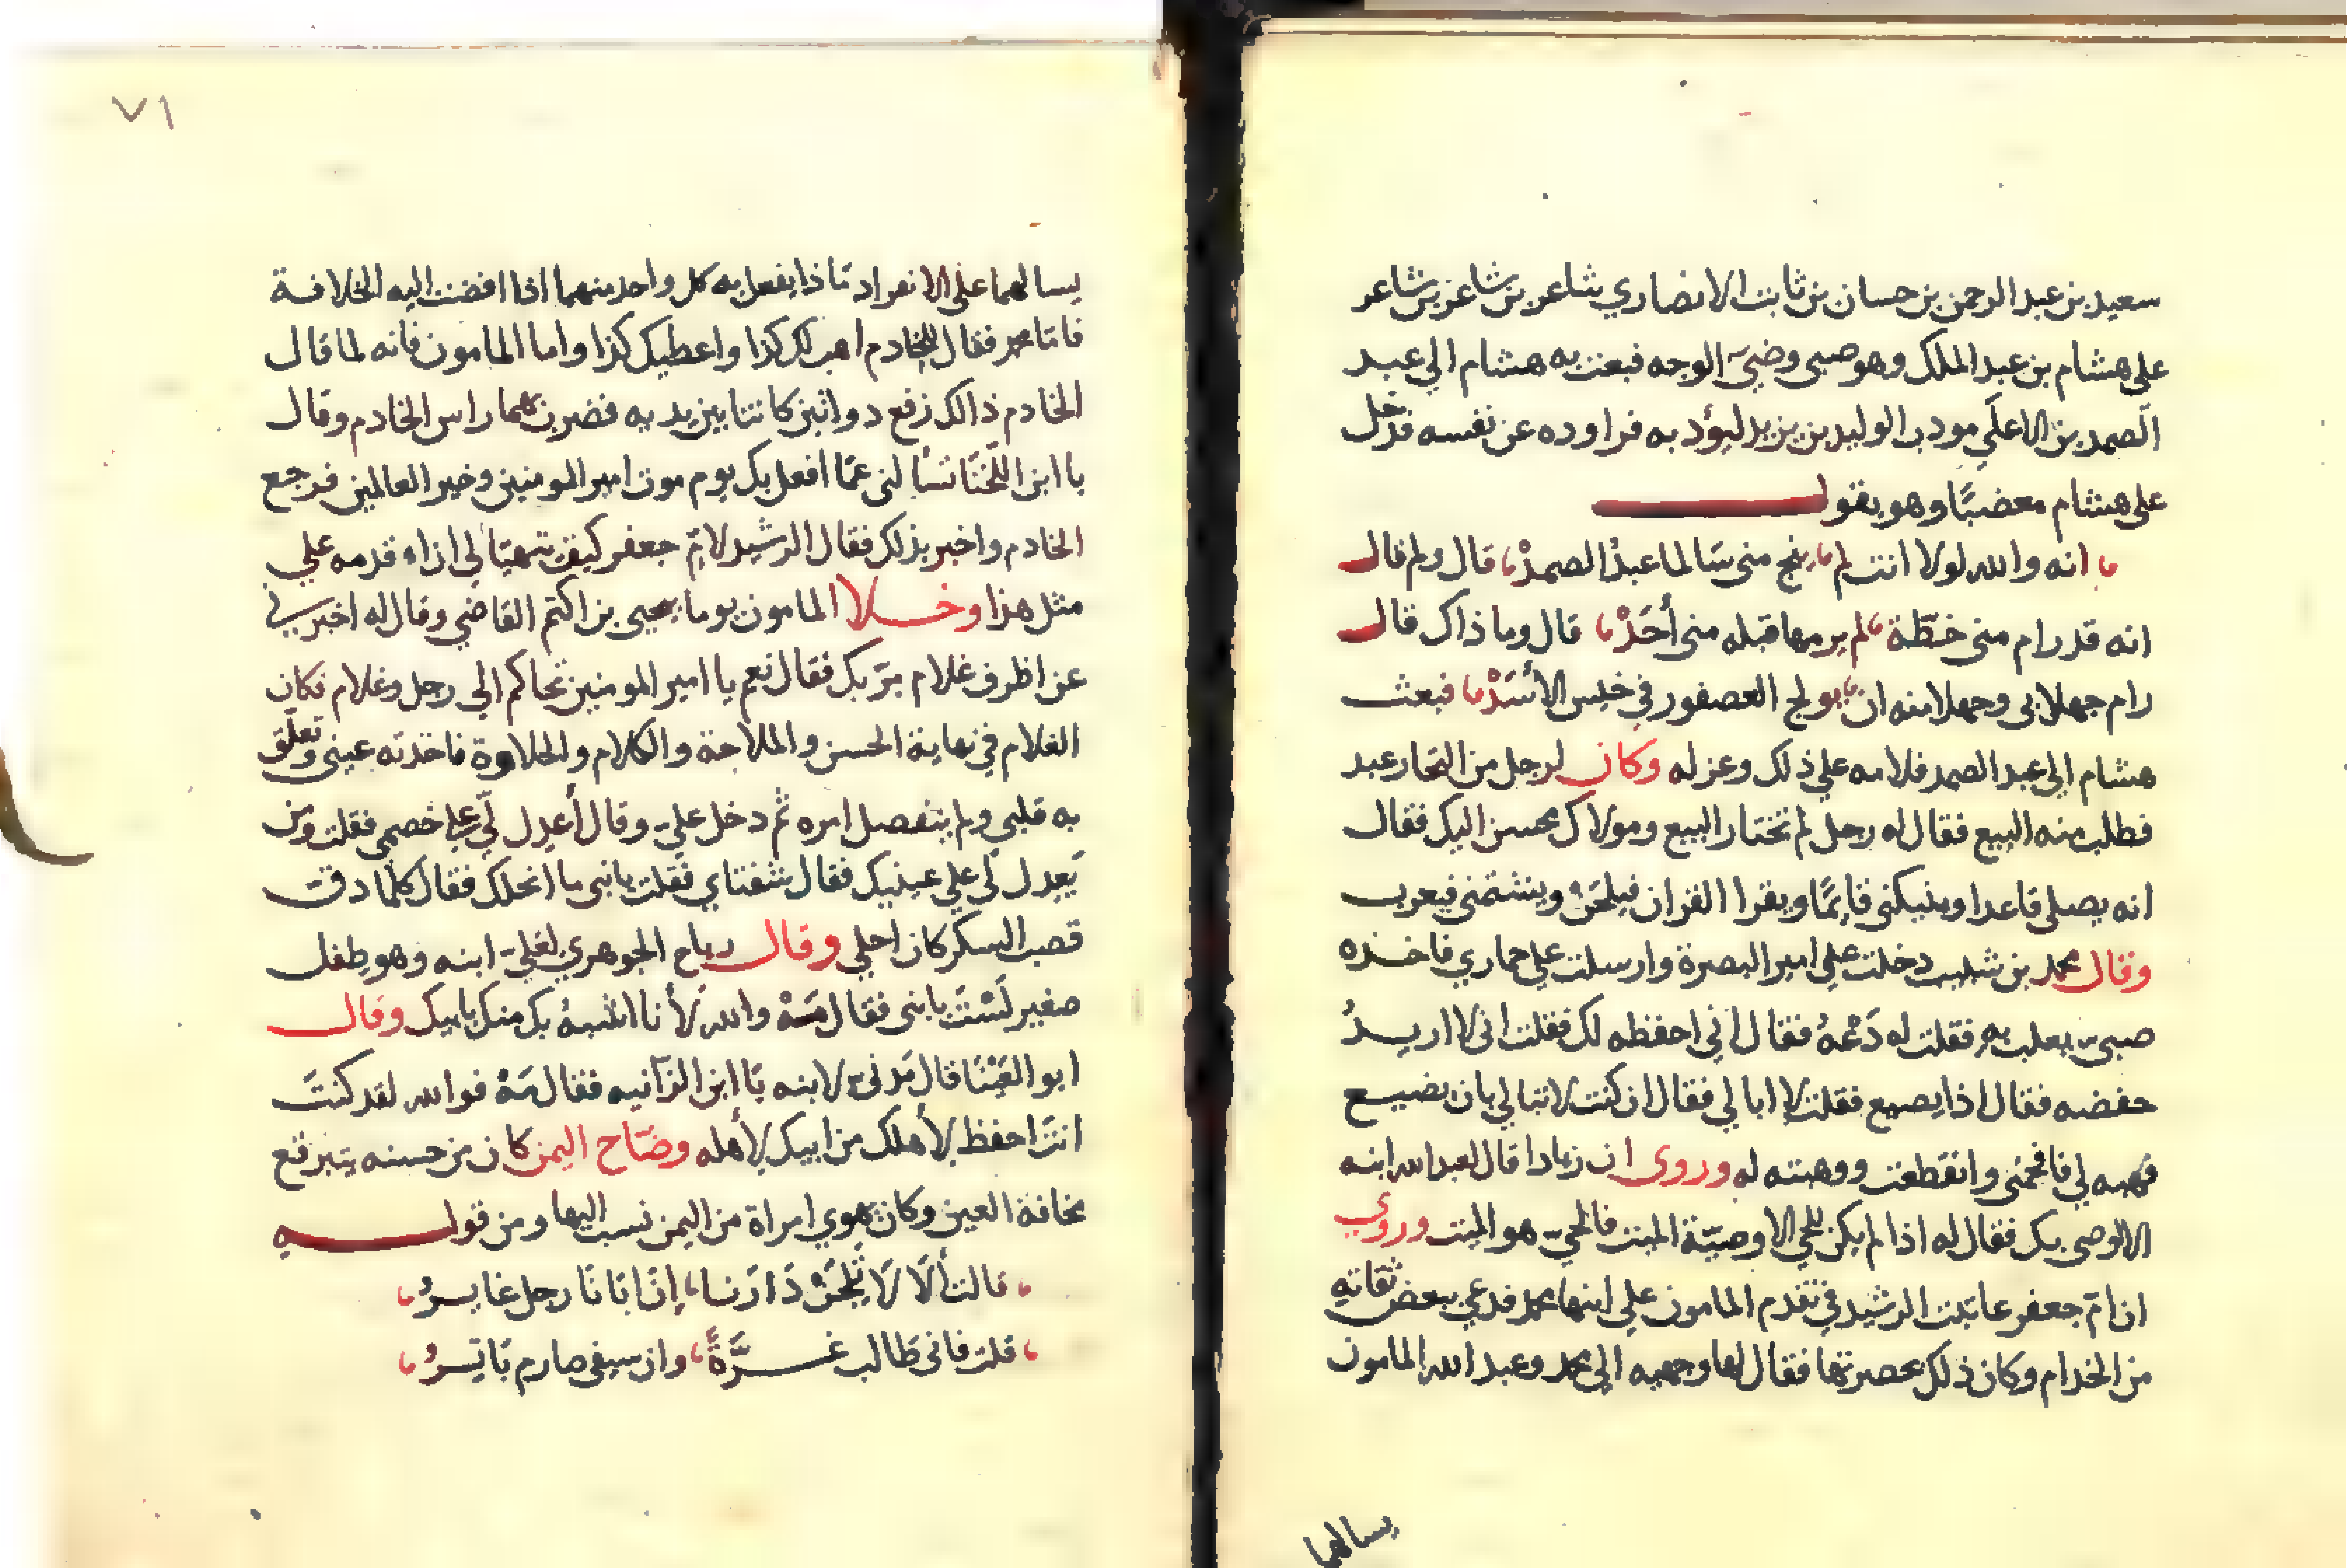 سعيد بن عبد الرحمن بن حسان بن ثابت الانصاري شاعر بن شاعر بن شاعر
على هشام بن عبد الملك وهو صبى وضىء الوجه فبعث به هشام الي عبد
الصمد بن الاعلي مودب الوليد بن يزيد ليؤدبه فراوده عن نفسه فدخل
على هشام مغضبًا وهو يقول
انه والله لولا انت لم ينج منى سالما عبدُ الصمدْ قال ولم قال
انه قد رام منى خطّة لم يرمها قبله منى أحَدْ قال وما ذاك قال
رام جهلا بى وجهلا منه ان يولج العصفور في خيس الأسَدْ فبعث
هشام الى عبد الصمد فلامه علي ذلك وعزله وكان لرجل من التجار عبد
فطلب منه البيع فقال له رجل لم تختار البيع ومولاك محسن اليك فقال
انه يصلى قاعدا وينيكنى قايمًا ويقرا القران فيلحن ويشتمنى فيعرب
وقال محمد بن شبيب دخلت على امير البصرة وارسلت علي حماري فاخذه
صبى يعلب به فقلت له دَعْهُ فقال انى احفظه لك فقلت انى لا اريدُ
حفضه فقال اذا يصيع فقلت لا ابالي فقال ان كنت لا تبالي بان يضيع
فهبه لي فافحمنى وانقطعت ووهبته له وروى ان زيادا قال لعبد الله ابنه
الا اوصى بك فقال له اذا لم يكن للحي الا وصيّة الميت فالحيّ هو الميت وروي
ان امّ جعفر عاتبت الرشيد في تقدم المامون على ابنها محمد فدعى ببعض ثقاته
من الخدام وكان ذلك بحصرتها فقال لها وجهيه الى محمد وعبد الله المامون
يسالهما
٧١
يسالهما على الانفراد ماذا يفعل به كل واحد منهما اذا افضت اليه الخلافة
فاما محمد فقال للخادم اهب لك كذا واعطيك كذا واما المامون فانه لما قال
الخادم ذالك رفع دواتين كانتا بين يديه فضرب بهما راس الخادم وقال
يا ابن اللّخنا تسألنى عمّا افعل بك يوم موت امير المومنين وخير العالمين فرجع
الخادم واخبر بذلك فقال الرشيد لامّ جعفر كيف تتهيّا لى ان اقدمه علي
مثل هذا وخلا المامون يوما بيحيى بن اكثم القاضي وقال له اخبرني
عن اظرف غلام مرّ بك فقال نعم يا امير المومنين تحاكم الي رجل وغلام فكان
الغلام في نهاية الحسن والملاحة والكلام والحلاوة فاخذته عينى وتعلّق
به قلبى ولم يتفصل امره ثم دخل عليّ وقال أعدل لي علي خصمى فقلت ومن
يَعدل لي علي عينيك فقال شفتاي فقلت يا بنى ما انحلك فقال كلما دق
قصب السكر كان احلي وقال رباح الجوهري لعليّ ابنه وهو طفل
صغير لَسْتَ يا بنى فقال مَهْ والله لأنا اشبهُ بك منك بابيك وقال
ابو العَيْنَا قال مَدنىّ لابنه يَا ابن الزانيه فقال مَهْ فوالله لقد كنتَ
انتَ احفظ لأهلك من ابيك لأهله وضّاح اليمن كان من حسنه يتبرقع
مخافة العين وكان يهوي امراة من اليمن نسب اليها ومن قوله
قالت ألَا لَا تلِجَنْ دَارَنا إنّ ابَانَا رجل غايرُ
قلت فانى طالب غرَّةً وان سيفى صارم بَاترُ